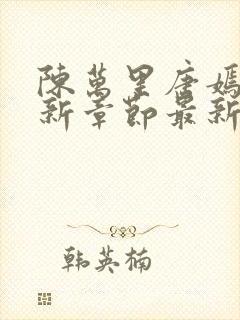 陳萬里唐嫣
新章節最新
韩英楠